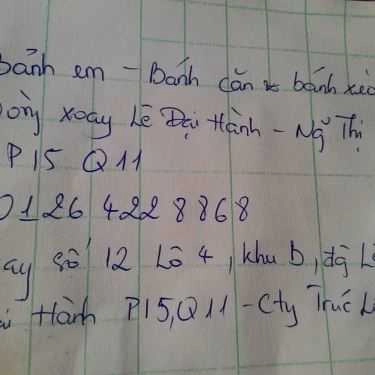 Bánh em - Bánh căn & bánh xèo
Xoay Lê Đại Hành - Ng Thị
P 15 Q 11
0126 422 8868
số 12 Lô 4, khu b, Lê
Hành P15, Q11 - Cty Trúc